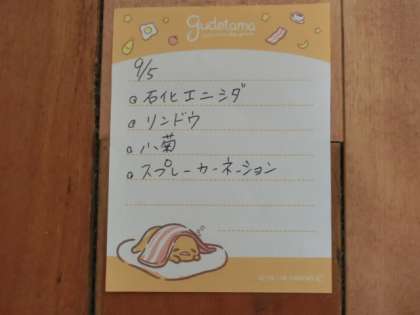 gudetama
9/5
石化エニシダ
リンドウ
小菊
スプレーカーネーション